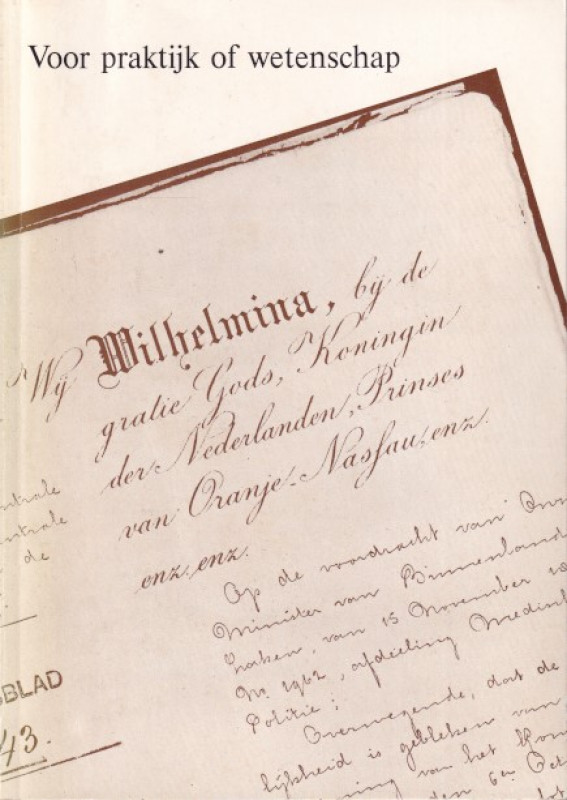 Voor praktijk of wetenschap
Wij Wilhelmina, bij de
gratie Gods, Koningin
der Nederlanden, Prinses
van Oranje-Nassau, enz.
enz. enz.
ntrale
ntrale
de
Op de voordracht van Onz
Minister van Binnenland
zaken, van 15 November
No. 1962, afdeeling Medisch
Politie;
Overwegende, dat de
lijkheid is gebleken van
ning van het Kon
den 6en Oct
SBLAD
43.